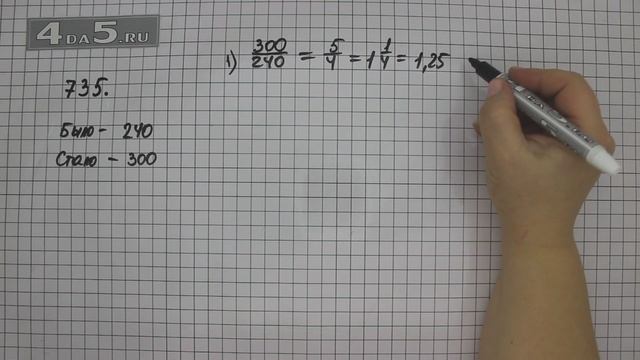 4DA5.RU
735.
Было - 240
Стало - 300
1) 300/240 = 5/4 = 1 1/4 = 1,25